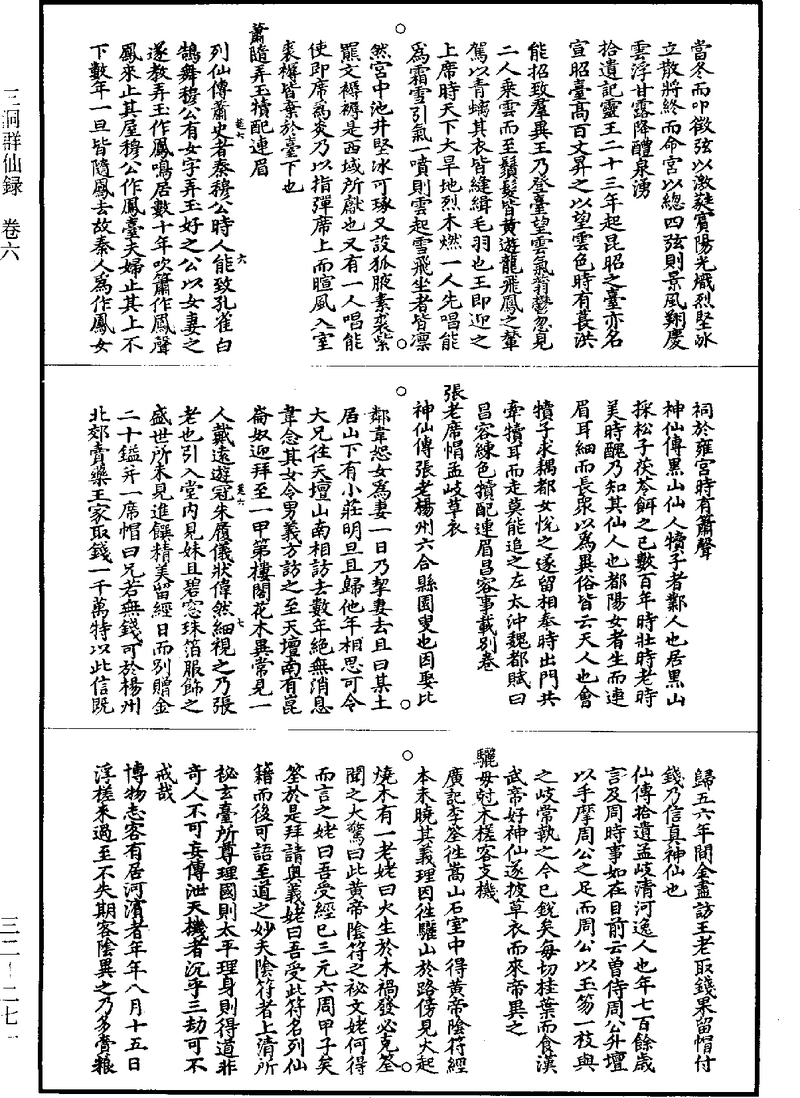 當冬而叩徵弦以激蕤賓陽光熾烈堅冰
立散將終而命宮以總四弦則景風翔慶
雲浮甘露降醴泉湧
拾遺記靈王二十三年起昆昭之臺亦名
宣昭臺高百丈昇之以望雲色時有萇洪
能招致羣異王乃登臺望雲氣蓊鬱忽見
二人乘雲而至鬚髮皆黄遊龍飛鳳之輦
駕以青螭其衣皆縫緝毛羽也王即迎之
上席時天下大旱地烈木燃一人先唱能
爲霜雪引氣一噴則雲起雪飛坐者皆凛
然宮中池井堅冰可琢又設狐腋素裘紫
羆文褥褥是西域所獻也又有一人唱能
使即席爲炎乃以指彈席上而暄風入室
裘褥皆棄於臺下也
蕭隨弄玉犢配連眉
列仙傳蕭史者秦穆公時人能致孔雀白
鵠舞穆公有女字弄玉好之公以女妻之
遂教弄玉作鳳鳴居數十年吹簫作鳳聲
鳳來止其屋穆公作鳳臺夫婦止其上不
下數年一旦皆隨鳳去故秦人爲作鳳女
祠於雍宮時有簫聲
神仙傳黑山仙人犢子者鄴人也居黑山
採松子茯苓餌之已數百年時壯時老時
美時醜乃知其仙人也都陽女者生而連
眉耳細而長衆以爲異俗皆云天人也會
犢子來耦都女悅之遂留相奉時出門共
牽犢耳而走莫能追之左太沖魏都賦曰
昌容練色犢配連眉昌容事載别卷
張老席帽孟岐草衣
神仙傳張老楊州六合縣園叟也因娶比
鄰韋恕女爲妻一日乃挈妻去且曰某土
居山下有小莊明旦且歸他年相思可令
大兄往天壇山南相訪去數年絕無消息
韋念其女令男義方訪之至天壇南有崑
崙奴迎拜至一甲第樓閣花木異常見一
人戴遠遊冠朱履儀狀偉然細視之乃張
老也引入堂内見妹且碧窓珠箔服飾之
盛世所未見進饌精美留經日而别贈金
二十鎰并一席帽曰兄若無錢可於楊州
北郊賣藥王家取錢一千萬特以此信既
歸五六年間金盡訪王老取錢果留帽付
錢乃信真神仙也
仙傳拾遺孟岐清河逸人也年七百餘歲
言及周時事如在目前云曾侍周公升壇
以手摩周公之足而周公以玉笏一枝與
之岐常執之今已銳矣每切桂葉而食漢
武帝好神仙遂披草衣而來帝異之
驪母尅木槎客支機
廣記李筌往嵩山石室中得黄帝陰符經
本未曉其義理因往驪山於路傍見火起
燒木有一老姥曰火生於木禍發必克筌
聞之大驚曰此黄帝陰符之秘文姥何得
而言之姥曰吾受經已三元六周甲子矣
筌於是拜請奥義姥曰吾受此符名列仙
籍而後可語至道之妙夫陰符者上清所
祕玄臺所尊理國則太平理身則得道非
奇人不可妄傳泄天機者沉乎三劫可不
戒哉
博物志客有居河濱者年年八月十五日
浮槎來過至不失期客陰異之乃多賫粮
三洞群仙録 卷六
三二—二七一